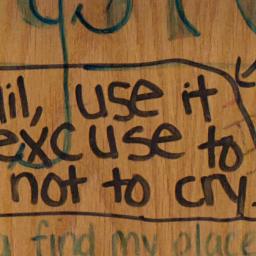 lil, use it
excuse to
not to cry.
find my place